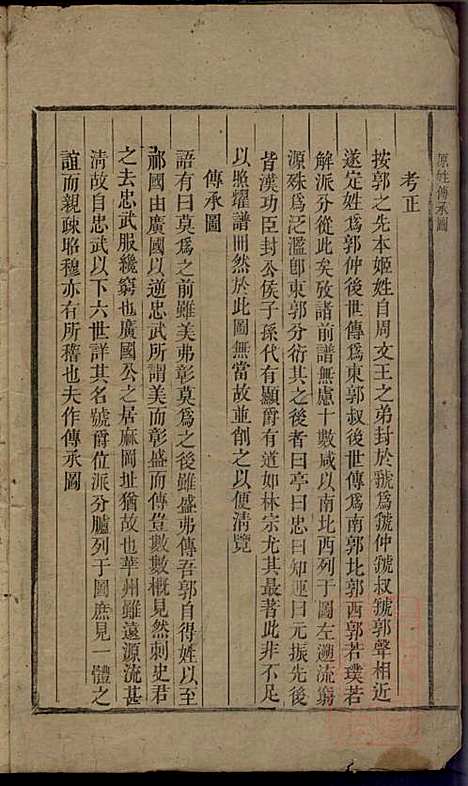 原姓傳承圖
考正
按郭之先本姬姓自周文王之弟封於虢爲虢仲虢叔虢郭聲相近
遂定姓爲郭仲後世傳爲東郭叔後世傳爲南郭北郭西郭若璞若
解派分從此矣攷諸前譜無慮十數咸以南北西列于圖左遡流窮
源殊爲泛濫卽東郭分衍其之後者曰亭曰忠曰知運曰元振先後
皆漢功臣封公侯子孫代有顯爵有道如林宗尤其最著此非不足
以照耀譜冊然於此圖無當故並創之以便清覽
傳承圖
語有曰莫爲之前雖美弗彰莫爲之後雖盛弗傳吾郭自得姓以至
祁國由廣國以逆忠武所謂美而彰盛而傳豈數數概見然刺史君
之去忠武服纔窮也廣國公之居麻岡址猶故也華州雖遠源流甚
淸故自忠武以下六世詳其名號爵位派分臚列于圖庶見一體之
誼而親疎昭穆亦有所稽也夫作傳承圖